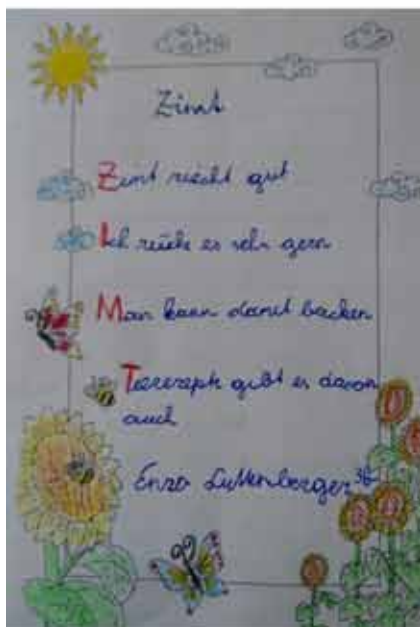 Zimt
Zimt riecht gut
Ich rieche es sehr gern
Man kann damit backen
gibt es davon
auch
Enzo Luttenberger 3b